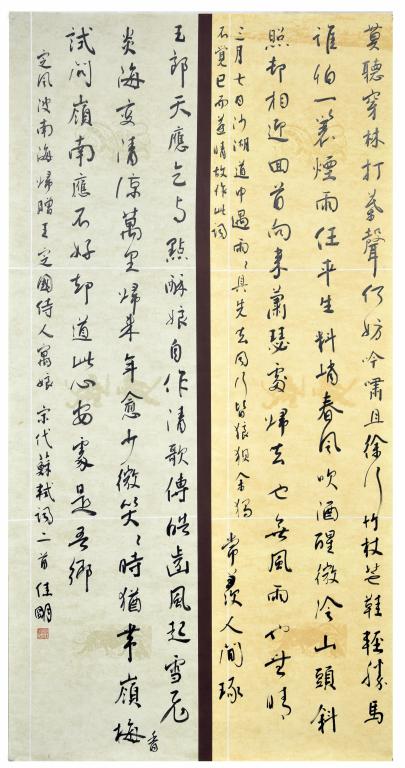 莫聽穿林打葉聲何妨吟嘯且徐行竹杖芒鞋輕勝馬
誰怕一簑煙雨任平生料峭春風吹酒醒微冷山頭斜
照却相迎回首向來蕭瑟處歸去也無風雨也無晴
三月七日沙湖道中遇雨〻具先去同行皆狼狽余獨
不覺已而遂晴故作此詞
常羨人間琢
玉郎天應乞與點酥娘自作清歌傳皓齒風起雪飛
炎海變清涼萬里歸來年愈少微笑〻時猶帶嶺梅香
試問嶺南應不好却道此心安處是吾鄉
定風波南海歸贈王定國侍人寓娘 宋代蘇軾詞二首 佳明